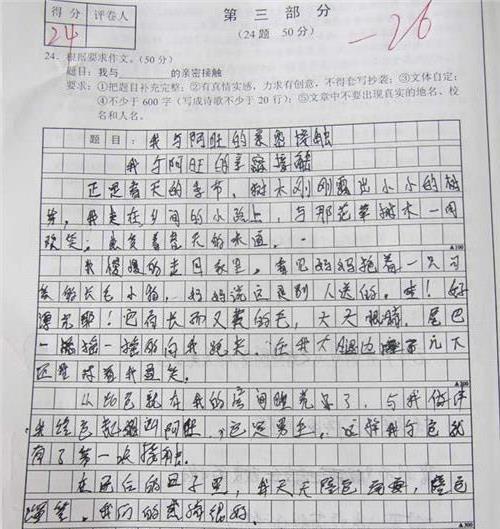 得分 评卷人
24
第三部分
-26
(24题 50分)
24. 根据要求作文。(50分)
题目：我与______的亲密接触
要求：①把题目补充完整；②有真情实感，力求有创意，不得套写抄袭；③文体自定；
④不少于600字（写成诗歌不少于20行）；⑤文章中不要出现真实的地名、校
名和人名。
题目：我与阿旺的亲密接触
我与阿旺的亲密接触
正是春天的季节，树木刚刚露出小小的树
芽，我走在乡间的小路上，与那花草树木一同
欢笑，
春天的
▲100
我慢慢的走回家里，看见妈妈抱着一只可
爱的长毛小狗，妈妈说这是别人送的。哇！好
漂亮耶！它有长而又黄的毛，大大眼睛，尾巴
一摇摇一摇的向我跑来，在我大腿边
还坐
▲200
从此它就在我的房间睡
我给它起名叫阿旺，这样我与它就
有了第一次接触。
在以后的日子里，我天天陪它玩耍，陪它
我们的感情很好。
▲300